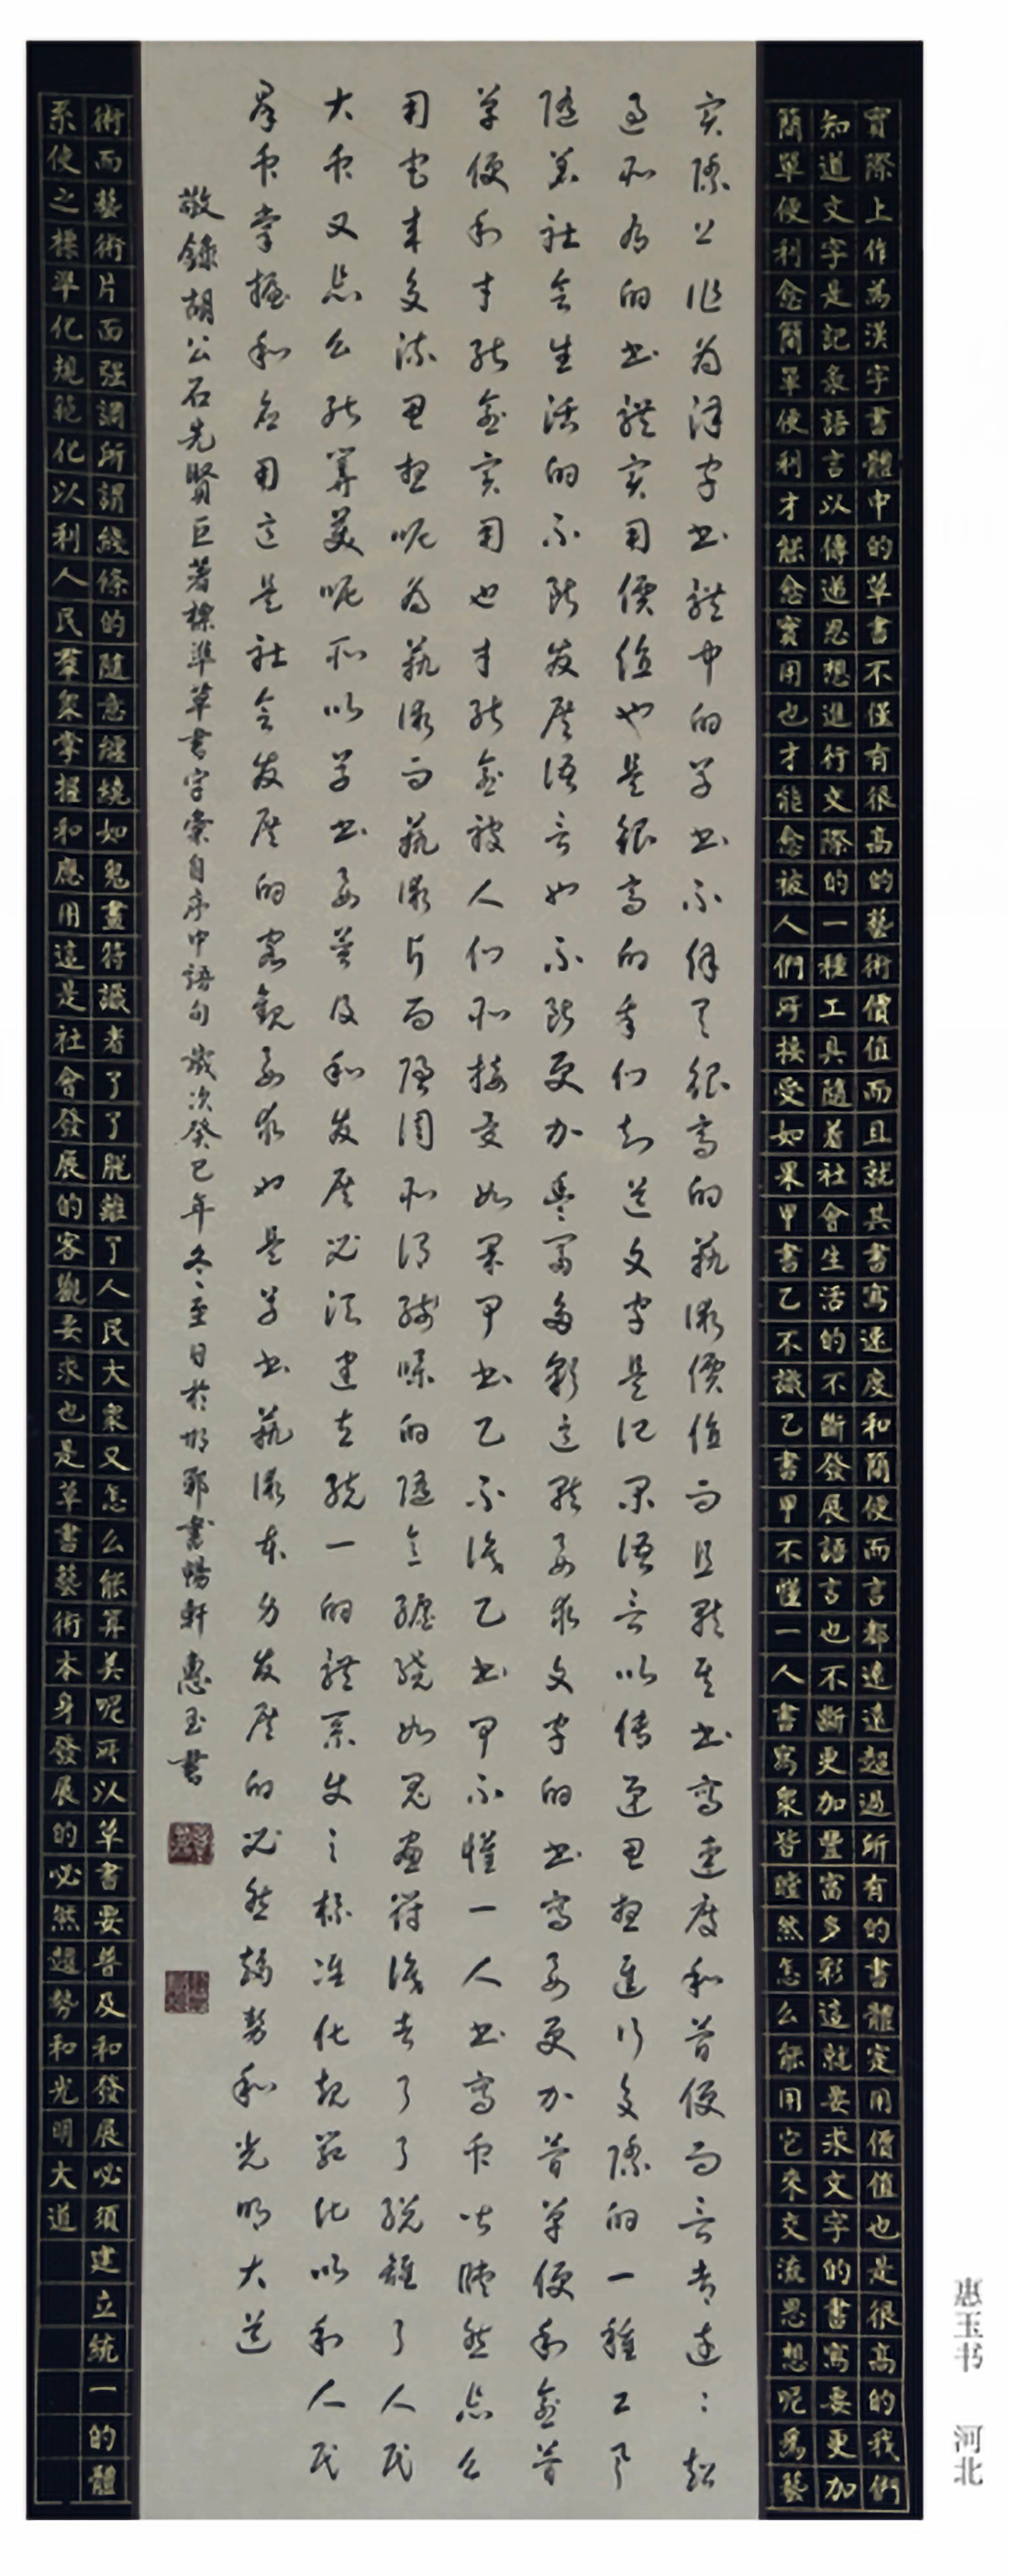 實際上作為漢字書體中的草書不僅有很高的藝術價值而且就其書寫速度和簡便而言都遠遠超過所有的書體实用價值也是很高的我們
知道文字是記彔語言以傳遞思想進行交際的一種工具隨着社會生活的不斷發展語言也不斷更加豐富多彩這就要求文字的書寫要更加
簡單便利愈簡單便利才能愈實用也才能愈被人們所接受如果甲書乙不識乙書甲不懂一人書寫衆皆瞠然怎么能用它來交流思想呢為藝
实際上作为漢字书體中的草书不僅有很高的藝術價值而且就其书寫速度和簡便而言都遠：超
過所有的书體实用價值也是很高的我们知道文字是记录語言以傳遞思想進行交際的一種工具
隨着社會生活的不斷發展語言也不斷更加豐富多彩這就要求文字的书寫要更加簡單便利愈簡
單便利才能愈实用也才能愈被人们所接受如果甲书乙不識乙书甲不懂一人书寫衆皆瞠然怎么
用它来交流思想呢为藝術而藝術片面强调所谓綫條的隨意纏繞如鬼畫符識者了了脱離了人民
大衆又怎么能算美呢所以草书要普及和發展必须建立统一的體系使之標准化規範化以利人民
羣衆掌握和應用這是社會發展的客觀要求也是草书藝術本身發展的必然趨勢和光明大道
敬錄胡公石先賢巨著標準草書字彙自序中語句歲次癸巳年冬至日於邯郸書暢軒惠玉書
術而藝術片面强調所謂綫條的随意纏繞如鬼畫符識者了了脱離了人民大衆又怎么能算美呢所以草書要普及和發展必須建立統一的體
系使之標準化規範化以利人民羣衆掌握和應用這是社會發展的客觀要求也是草書藝術本身發展的必然趨勢和光明大道
惠玉书 河北